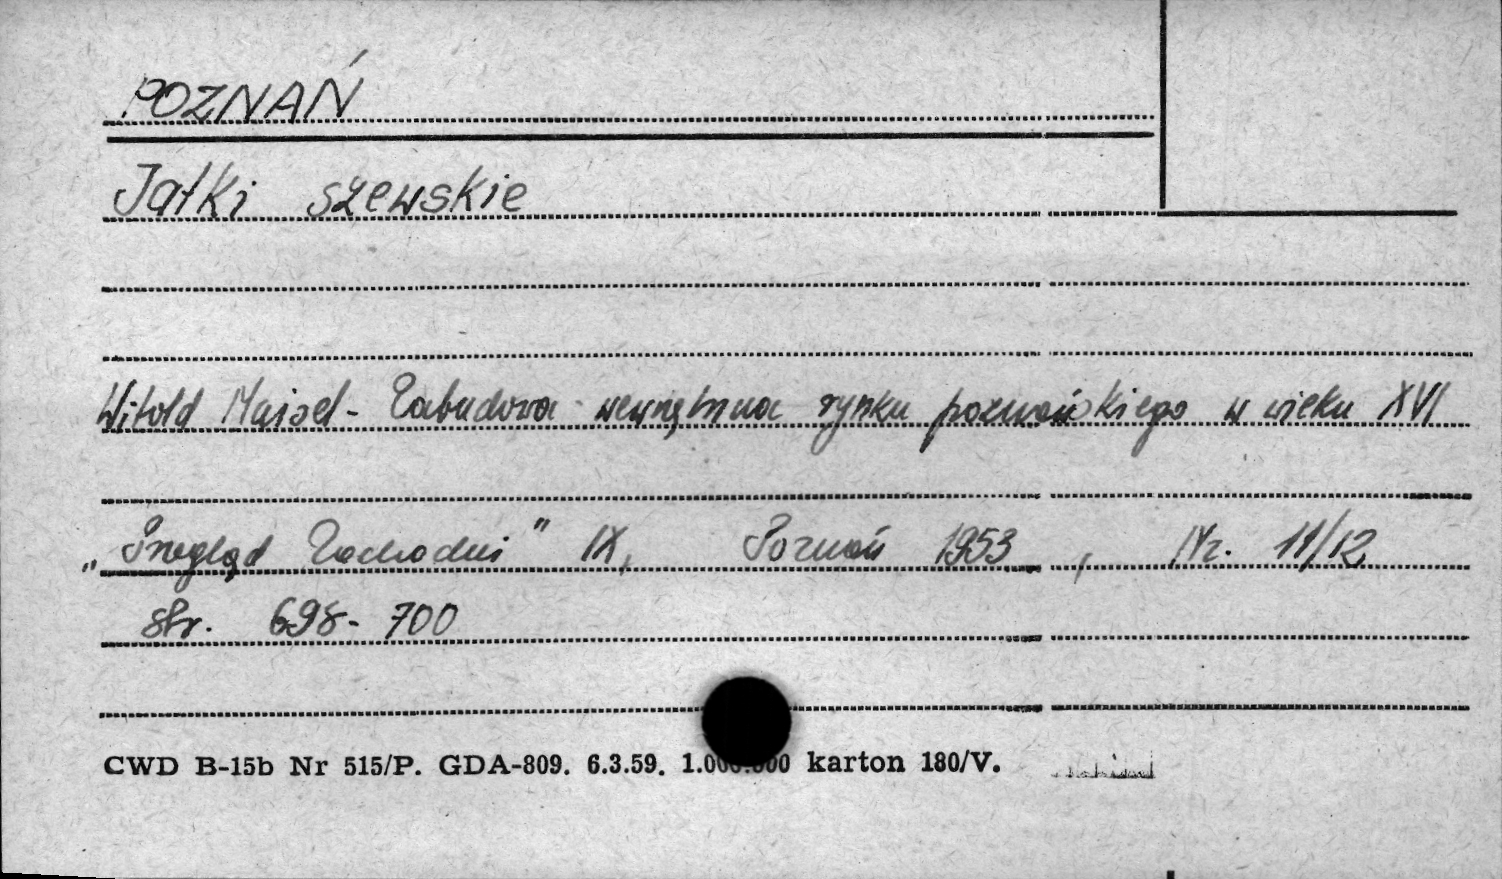 POZNAŃ
Jatki szewskie
Witold Maisel - Zabudowa wewnętrzna rynku poznańskiego w wieku XVI
„Przegląd Zachodni" IX, Poznań 1953, Nr. 11/12
str. 698-700
CWD B-15b Nr 515/P. GDA-809. 6.3.59. 1.000.000 karton 180/V.